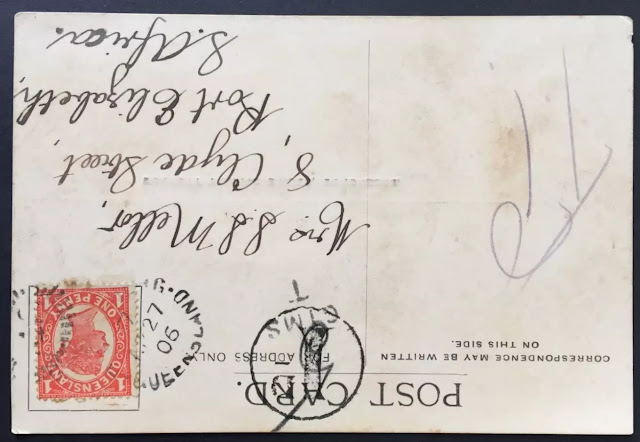 POST CARD.
FOR ADDRESS ONLY.
CORRESPONDENCE MAY BE WRITTEN
ON THIS SIDE.
QUEENSLAND
ONE PENNY
1
1
27
06
QUEENSLAND
T
Mrs S S Mellor,
8, Clyde Street,
Port Elizabeth,
S. Africa.